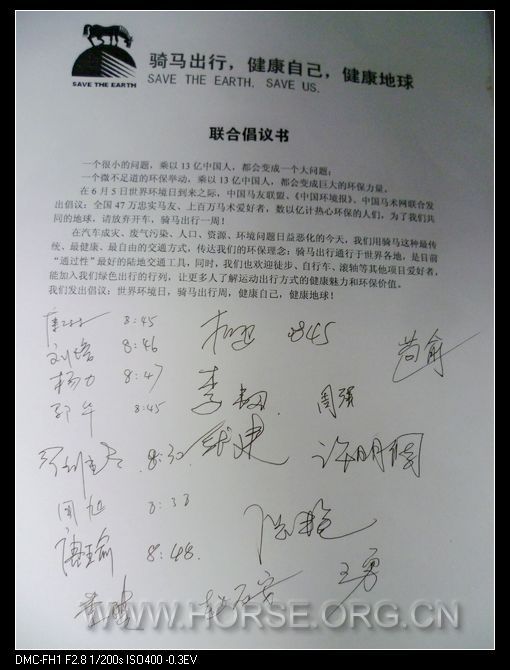 骑马出行，健康自己，健康地球
SAVE THE EARTH, SAVE US.
SAVE THE EARTH
联合倡议书
一个很小的问题，乘以13亿中国人，都会变成一个大问题；
一个微不足道的环保举动，乘以13亿中国人，都会变成巨大的环保力量。
在6月5日世界环境日到来之际，中国马友联盟、《中国环境报》、中国马术网联合发
出倡议：全国47万忠实马友、上百万马术爱好者，数以亿计热心环保的人们，为了我们共
同的地球，请放弃开车，骑马出行一周！
在汽车成灾、废气污染、人口、资源、环境问题日益恶化的今天，我们用骑马这种最传
统、最健康、最自由的交通方式，传达我们的环保理念；骑马出行通行于世界各地，是目前
“通过性”最好的陆地交通工具，同时，我们也欢迎徒步、自行车、滚轴等其他项目爱好者，
能加入我们绿色出行的行列，让更多人了解运动出行方式的健康魅力和环保价值。
我们发出倡议：世界环境日，骑马出行周，健康自己，健康地球！
8:45 0845
8:46
杨力 8:47 李
郭华 8:45 周强
8:30 许明
周旭 8:38
唐瑜 8:48.
王勇
WWW.HORSE.ORG.CN
DMC-FH1 F2.8 1/200s ISO400 -0.3EV